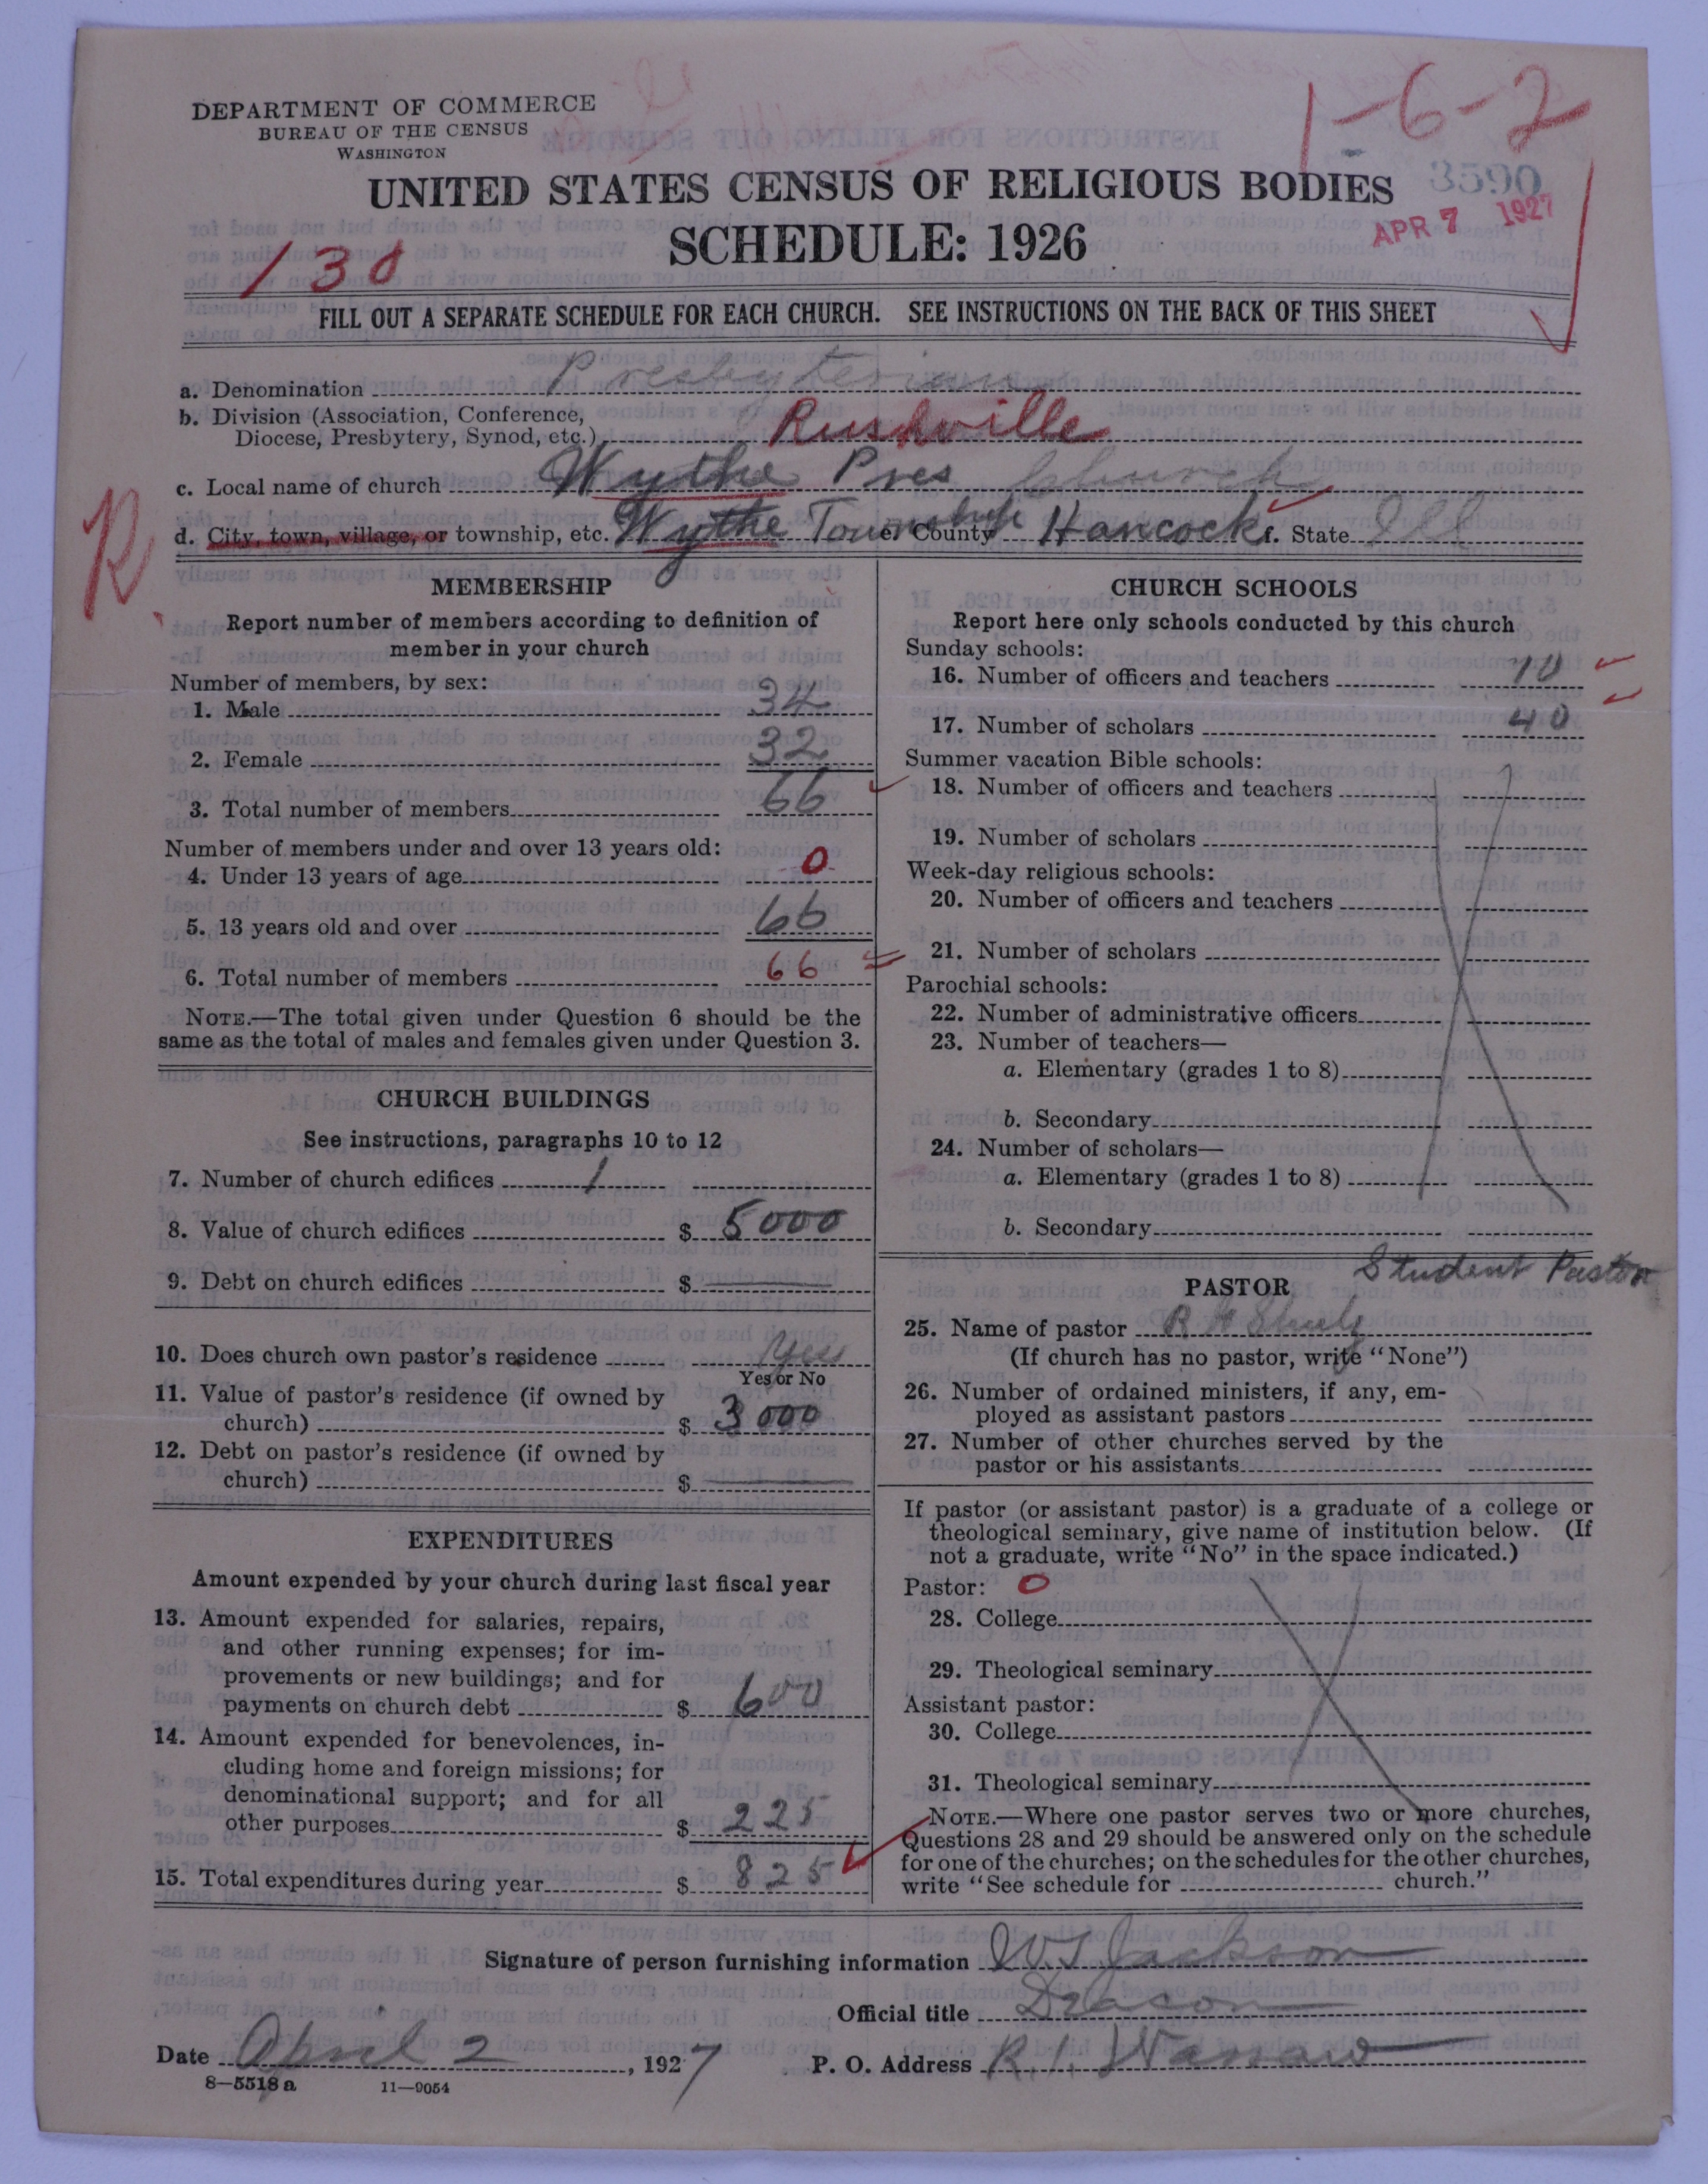 1-6-2
DEPARTMENT OF COMMERCE
BUREAU OF THE CENSUS
WASHINGTON
UNITED STATES CENSUS OF RELIGIOUS BODIES
3590
SCHEDULE: 1926
APR 7 1927
130
FILL OUT A SEPARATE SCHEDULE FOR EACH CHURCH. SEE INSTRUCTIONS ON THE BACK OF THIS SHEET
a. Denomination Presbyterian
b. Division (Association, Conference,
Diocese, Presbytery, Synod, etc.) Rushville
c. Local name of church Wythe Pres Church
R
d. City, town, village, or township, etc. Wythe Township e. County Hancock f. State Ill
MEMBERSHIP
Report number of members according to definition of
member in your church
Number of members, by sex:
1. Male 34
2. Female 32
3. Total number of members 66
Number of members under and over 13 years old:
4. Under 13 years of age 0
5. 13 years old and over 66
6. Total number of members 66
NOTE.—The total given under Question 6 should be the
same as the total of males and females given under Question 3.
CHURCH BUILDINGS
See instructions, paragraphs 10 to 12
7. Number of church edifices 1
8. Value of church edifices $ 5000
9. Debt on church edifices $
10. Does church own pastor's residence Yes
Yes or No
11. Value of pastor's residence (if owned by
church) $ 3000
12. Debt on pastor's residence (if owned by
church) $
EXPENDITURES
Amount expended by your church during last fiscal year
13. Amount expended for salaries, repairs,
and other running expenses; for im-
provements or new buildings; and for
payments on church debt $ 600
14. Amount expended for benevolences, in-
cluding home and foreign missions; for
denominational support; and for all
other purposes $ 225
15. Total expenditures during year $ 825
CHURCH SCHOOLS
Report here only schools conducted by this church
Sunday schools:
16. Number of officers and teachers 10
17. Number of scholars 40
Summer vacation Bible schools:
18. Number of officers and teachers
19. Number of scholars
Week-day religious schools:
20. Number of officers and teachers
21. Number of scholars
Parochial schools:
22. Number of administrative officers
23. Number of teachers—
a. Elementary (grades 1 to 8)
b. Secondary
24. Number of scholars—
a. Elementary (grades 1 to 8)
b. Secondary
PASTOR Student Pastor
25. Name of pastor R
(If church has no pastor, write "None")
26. Number of ordained ministers, if any, em-
ployed as assistant pastors
27. Number of other churches served by the
pastor or his assistants
If pastor (or assistant pastor) is a graduate of a college or
theological seminary, give name of institution below. (If
not a graduate, write "No" in the space indicated.)
Pastor: O
28. College
29. Theological seminary
Assistant pastor:
30. College
31. Theological seminary
NOTE.—Where one pastor serves two or more churches,
Questions 28 and 29 should be answered only on the schedule
for one of the churches; on the schedules for the other churches,
write "See schedule for church."
Signature of person furnishing information W.T. Jackson
Official title Deacon
Date April 2, 1927 P. O. Address R. 1. Warsaw
8—5518 a 11—9054